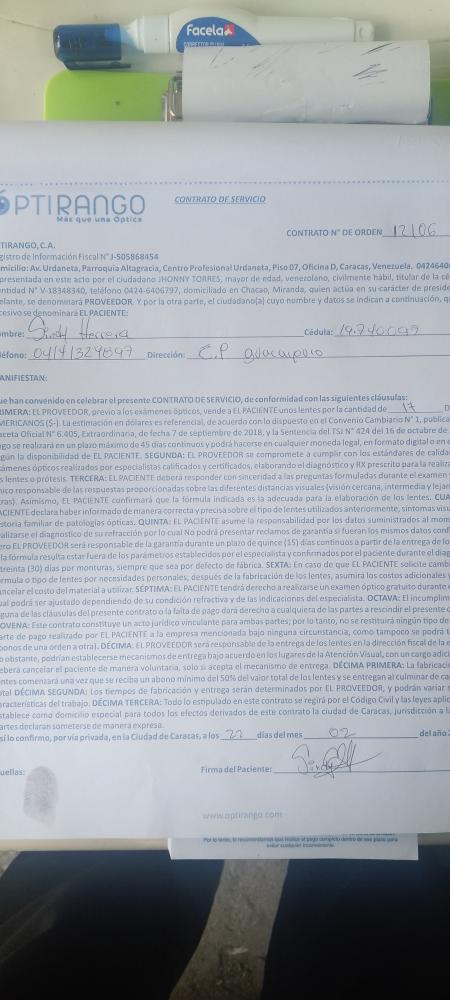 Facela
OPTIRANGO
Más que una Óptica
CONTRATO DE SERVICIO
CONTRATO N° DE ORDEN 12106
TIRANGO, C.A.
gistro de Información Fiscal N° J-505868454
micilio: Av. Urdaneta, Parroquia Altagracia, Centro Profesional Urdaneta, Piso 07, Oficina D, Caracas, Venezuela. 04246406
presentada en este acto por el ciudadano JHONNY TORRES, mayor de edad, venezolano, civilmente hábil, titular de la cé
entidad N° V-18348340, teléfono 0424-6406797, domiciliado en Chacao, Miranda, quien actúa en su carácter de preside
elante, se denominará PROVEEDOR. Y por la otra parte, el ciudadano(a) cuyo nombre y datos se indican a continuación, q
cesivo se denominará EL PACIENTE:
ombre: Sindy Herrera Cédula: 19.740097
léfono: 04141329897 Dirección: C.P guaicaipuro
ANIFIESTAN:
ue han convenido en celebrar el presente CONTRATO DE SERVICIO, de conformidad con las siguientes cláusulas:
RIMERA: EL PROVEEDOR, previo a los exámenes ópticos, vende a EL PACIENTE unos lentes por la cantidad de 17 D
MERICANOS ($-). La estimación en dólares es referencial, de acuerdo con lo dispuesto en el Convenio Cambiario N° 1, publica
aceta Oficial N° 6.405, Extraordinaria, de fecha 7 de septiembre de 2018, y la Sentencia del TSJ N° 424 del 16 de octubre de
ago se realizará en un plazo máximo de 45 días continuos y podrá hacerse en cualquier moneda legal, en formato digital o en e
gún la disponibilidad de EL PACIENTE. SEGUNDA: EL PROVEEDOR se compromete a cumplir con los estándares de calida
ámenes ópticos realizados por especialistas calificados y certificados, elaborando el diagnóstico y RX prescrito para la realiza
s lentes o prótesis. TERCERA: EL PACIENTE deberá responder con sinceridad a las preguntas formuladas durante el examen
nico responsable de las respuestas proporcionadas sobre las diferentes distancias visuales (visión cercana, intermedia y lejan
ras). Asimismo, EL PACIENTE confirmará que la fórmula indicada es la adecuada para la elaboración de los lentes. CUA
ACIENTE declara haber informado de manera correcta y precisa sobre el tipo de lentes utilizados anteriormente, síntomas visu
storia familiar de patologías ópticas. QUINTA: EL PACIENTE asume la responsabilidad por los datos suministrados al mom
alizarse el diagnostico de su refracción por lo cual No podrá presentar reclamos de garantía si fueran los mismos datos confi
ero EL PROVEEDOR será responsable de la garantía durante un plazo de quince (15) días continuos a partir de la entrega de lo
la fórmula resulta estar fuera de los parámetros establecidos por el especialista y confirmados por el paciente durante el diag
treinta (30) días por monturas, siempre que sea por defecto de fábrica. SEXTA: En caso de que EL PACIENTE solicite camb
rmula o tipo de lentes por necesidades personales, después de la fabricación de los lentes, asumirá los costos adicionales y
ancelar el costo del material a utilizar. SÉPTIMA: EL PACIENTE tendrá derecho a realizarse un examen óptico gratuito durante
ual podrá ser ajustado dependiendo de su condición refractiva y de las indicaciones del especialista. OCTAVA: El incumplim
guna de las cláusulas del presente contrato o la falta de pago dará derecho a cualquiera de las partes a rescindir el presente c
OVENA: Este contrato constituye un acto jurídico vinculante para ambas partes; por lo tanto, no se restituirá ningún tipo de
arte de pago realizado por EL PACIENTE a la empresa mencionada bajo ninguna circunstancia, como tampoco se podrá t
bonos de una orden a otra). DÉCIMA: EL PROVEEDOR será responsable de la entrega de los lentes en la dirección fiscal de la e
o obstante, podrían establecerse mecanismos de entrega bajo acuerdo en los lugares de la Atención Visual, con un cargo adici
eberá cancelar el paciente de manera voluntaria, solo si acepta el mecanismo de entrega. DÉCIMA PRIMERA: La fabricació
ntes comenzará una vez que se reciba un abono mínimo del 50% del valor total de los lentes y se entregan al culminar de ca
tal DÉCIMA SEGUNDA: Los tiempos de fabricación y entrega serán determinados por EL PROVEEDOR, y podrán variar s
racterísticas del trabajo. DÉCIMA TERCERA: Todo lo estipulado en este contrato se regirá por el Código Civil y las leyes aplic
stablece como domicilio especial para todos los efectos derivados de este contrato la ciudad de Caracas, jurisdicción a l
artes declaran someterse de manera expresa.
sí lo confirmo, por vía privada, en la Ciudad de Caracas, a los 22 días del mes 02 del año 2
uellas: Firma del Paciente:
www.optirango.com
Por lo tanto, le recomendamos que realice el pago completo dentro de ese plazo para
evitar cualquier inconveniente.